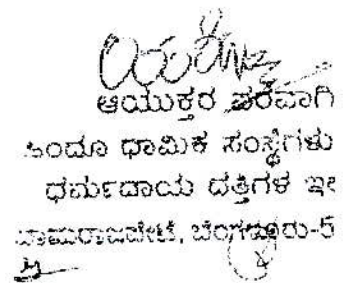 ಆಯುಕ್ತರ ಪರವಾಗಿ
ಹಿಂದೂ ಧಾಮಿಕ ಸಂಸ್ಥೆಗಳು
ಧರ್ಮದಾಯ ದತ್ತಿಗಳ ಇ
ಚಾಮರಾಜಪೇಟೆ, ಬೆಂಗಳೂರು-5